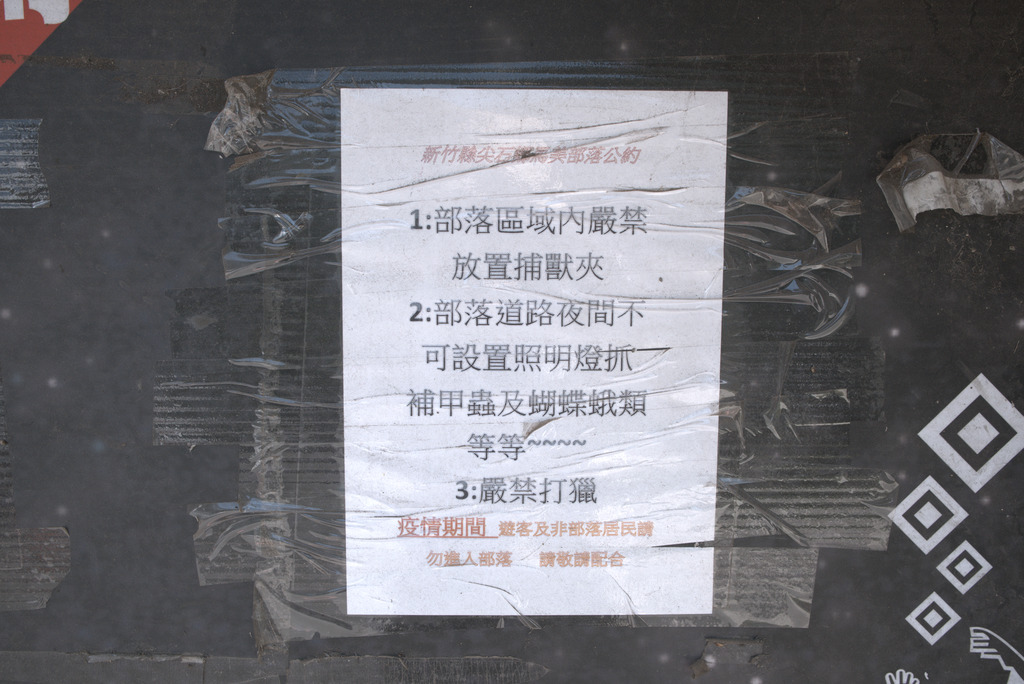 新竹縣尖石鄉錦美部落公約
1:部落區域內嚴禁
放置捕獸夾
2:部落道路夜間不
可設置照明燈抓
補甲蟲及蝴蝶蛾類
等等~~~~
3:嚴禁打獵
疫情期間 遊客及非部落居民請
勿進入部落 請敬請配合